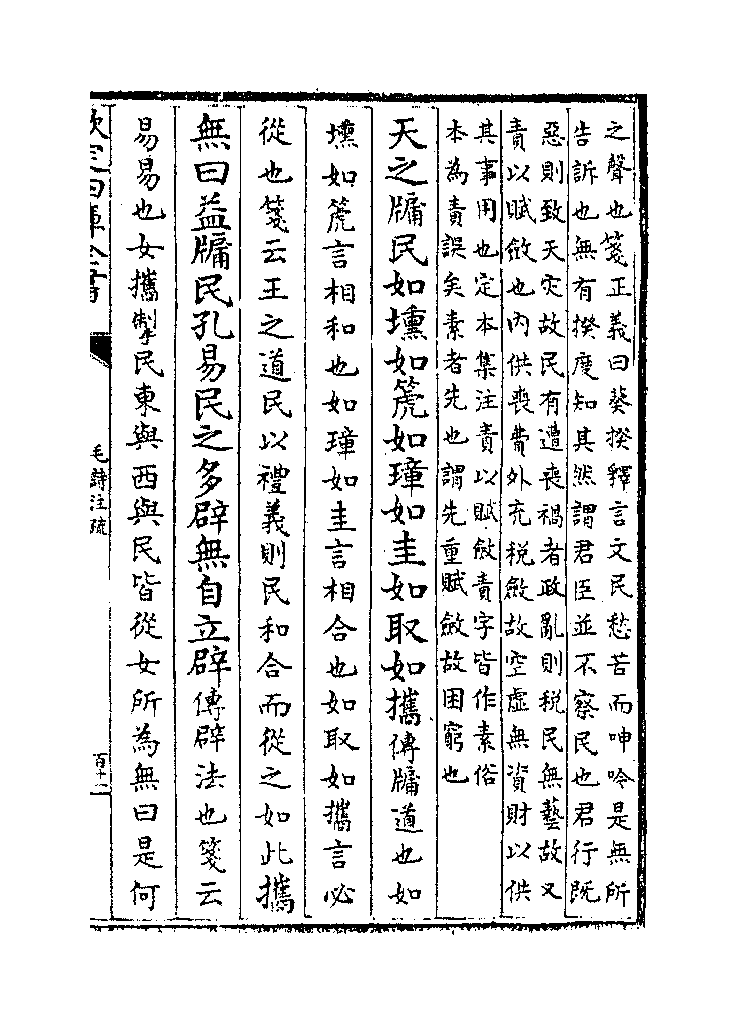 之聲也箋正義曰葵揆釋言文民愁苦而呻吟是無所
告訴也無有揆度知其然謂君臣並不察民也君行既
惡則致天灾故民有遭喪禍者政亂則税民無藝故又
責以賦斂也内供喪費外充税斂故空虚無資財以供
其事用也定本集注責以賦斂責字皆作素俗
本為責誤矣素者先也謂先重賦斂故困窮也
天之牖民如壎如篪如璋如圭如取如攜傳牖道也如
壎如篪言相和也如璋如圭言相合也如取如攜言必
從也箋云王之道民以禮義則民和合而從之如此攜
無曰益牖民孔易民之多辟無自立辟傳辟法也箋云
易易也女攜掣民東與西與民皆從女所為無曰是何
欽定四庫全書
毛詩注疏